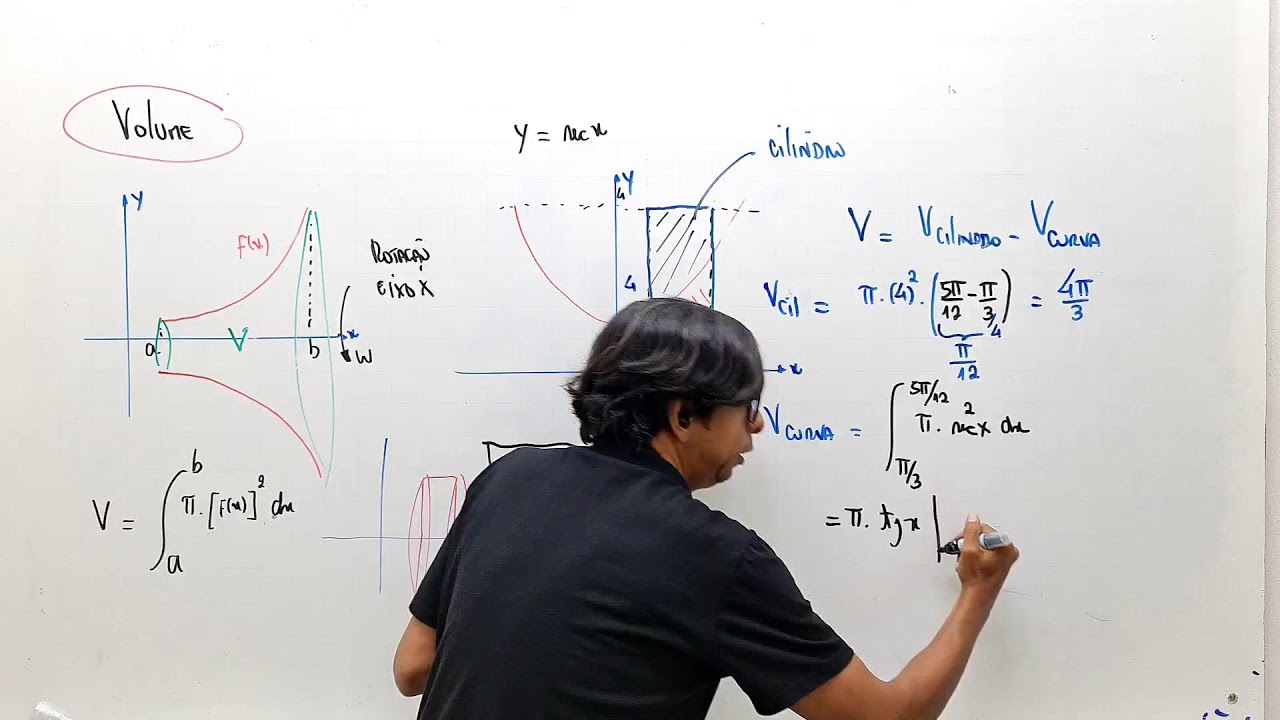 Volume
y
f(x)
ROTAÇÃO
EIXO X
a
V
b
x
W
V = ∫ₐᵇ π.[f(x)]² dx
y = sec x
y
4
4
x
CILINDRO
V = V_CILINDRO - V_CURVA
V_CIL = π.(4)².(5π/12 - π/3) = 4π/3
/4
π/12
V_CURVA = ∫_{π/3}^{5π/12} π. sec²x dx
= π. tg x |